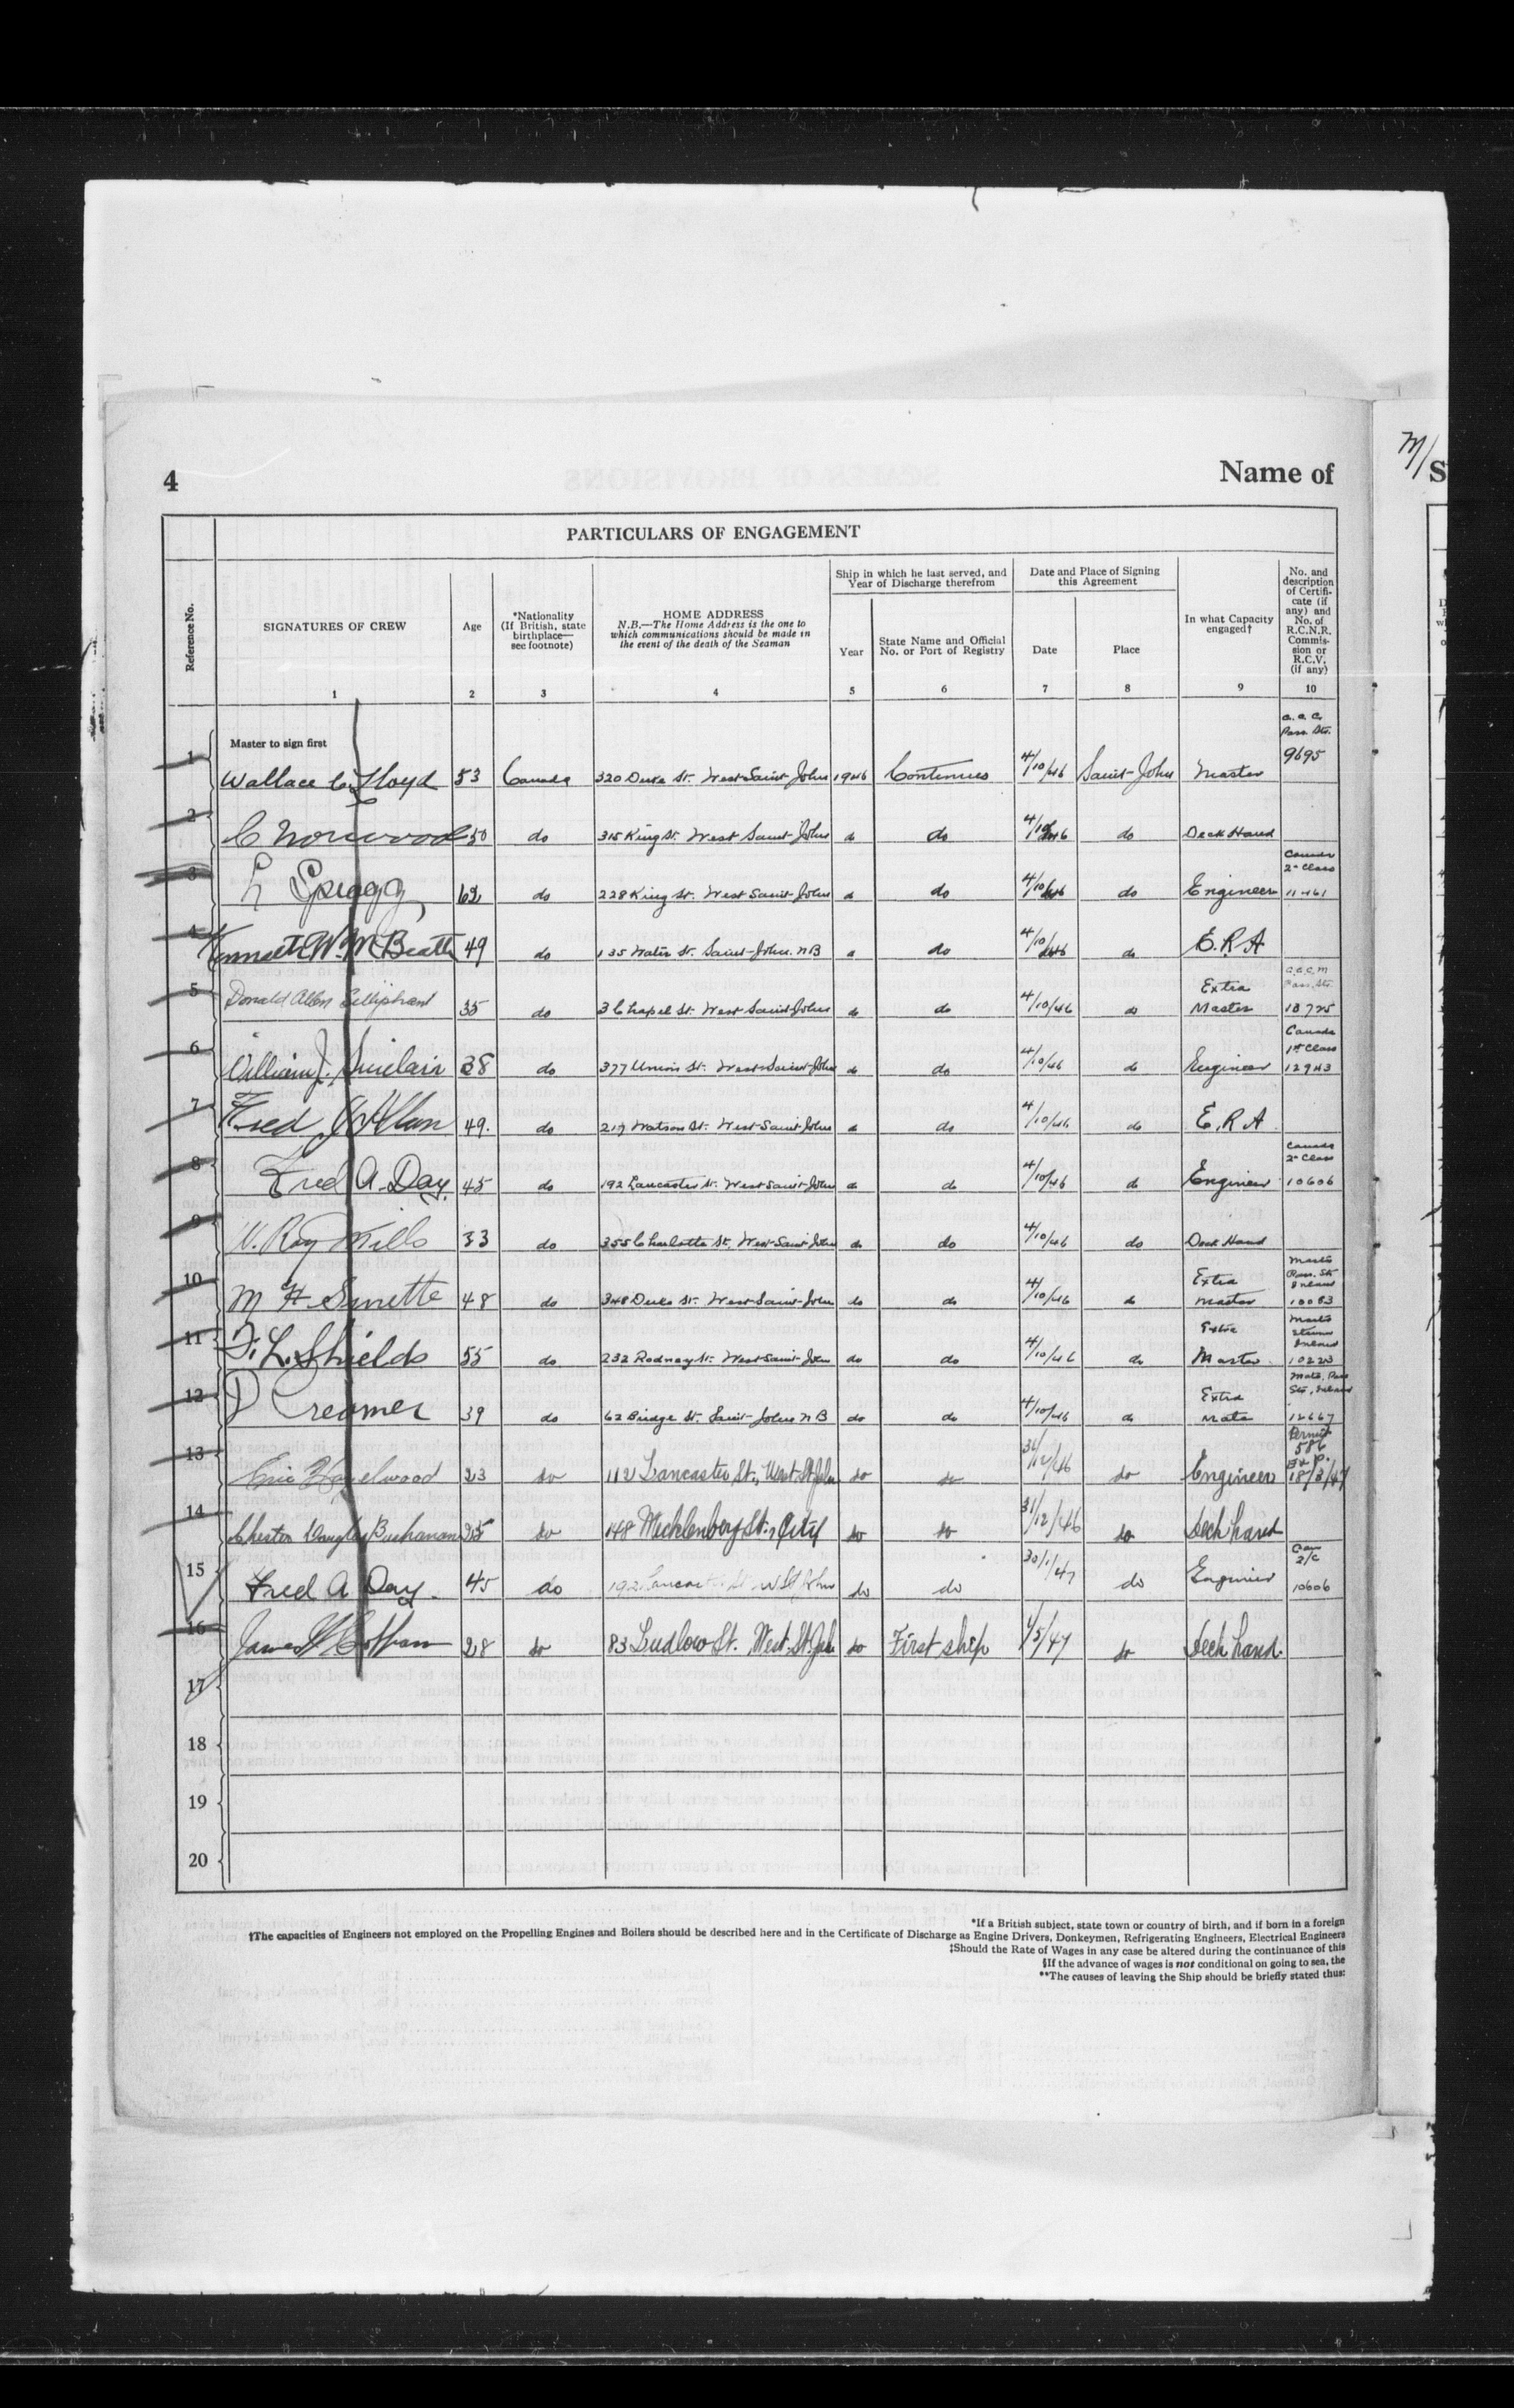 M/S
4 Name of
PARTICULARS OF ENGAGEMENT
Reference No.
SIGNATURES OF CREW
Age
*Nationality
(If British, state
birthplace—
see footnote)
HOME ADDRESS
N.B.—The Home Address is the one to
which communications should be made in
the event of the death of the Seaman
Ship in which he last served, and
Year of Discharge therefrom
Year
State Name and Official
No. or Port of Registry
Date and Place of Signing
this Agreement
Date
Place
In what Capacity
engaged†
No. and
description
of Certifi-
cate (if
any) and
No. of
R.C.N.R.
Commis-
sion or
R.C.V.
(if any)
1 2 3 4 5 6 7 8 9 10
Master to sign first
1 Wallace C. Lloyd 53 Canada 320 Duke St. West Saint John 1946 Continues 4/10/46 Saint John Master 9695
2 C Norwood 50 do 315 King St. West Saint John do do 4/10/46 do Deck Hand
3 L Spragg 62 do 228 King St. West Saint John do do 4/10/46 do Engineer Canada 2nd Class 11461
4 Kenneth W. McBeath 49 do 135 Water St. Saint John. N B do do 4/10/46 do E.R.A
5 Donald Allen 35 do 3 Chapel St. West Saint John do do 4/10/46 do Extra Master 10725
6 William J. Sinclair 38 do 377 Union St. West Saint John do do 4/10/46 do Engineer Canada 1st Class 12943
7 Fred 49. do 217 Watson St. West Saint John do do 4/10/46 do E.R.A
8 Fred A. Day 45 do 192 Lancaster St. West Saint John do do 4/10/46 do Engineer Canada 2nd Class 10606
9 W. Ray Mills 33 do 355 Charlotte St. West Saint John do do 4/10/46 do Deck Hand
10 M H Smette 48 do 348 Duke St. West Saint John do do 4/10/46 do Extra Master 10083
11 F. L. Shields 55 do 232 Rodney St. West Saint John do do 4/10/46 do Extra Master 10223
12 D Creamer 39 do 62 Bridge St. Saint John N B do do 4/10/46 do Extra Mate 12667
13 Eric Hazelwood 23 do 112 Lancaster St., West St John do do 31/12/46 do Engineer Permit 586 Exp. 18/3/47
14 Chester Douglas Buchanan 25 do 148 Mecklenberg St., City do do 31/12/46 do deck hand
15 Fred A Day. 45 do 192 Lancaster St W St John do do 30/1/47 do Engineer Can 2/C 10606
16 James 28 do 83 Ludlow St. West. St. John do First ship 1/5/47 do deck hand.
17
18
19
20
*If a British subject, state town or country of birth, and if born in a foreign
†The capacities of Engineers not employed on the Propelling Engines and Boilers should be described here and in the Certificate of Discharge as Engine Drivers, Donkeymen, Refrigerating Engineers, Electrical Engineers
‡Should the Rate of Wages in any case be altered during the continuance of this
§If the advance of wages is not conditional on going to sea, the
**The causes of leaving the Ship should be briefly stated thus: